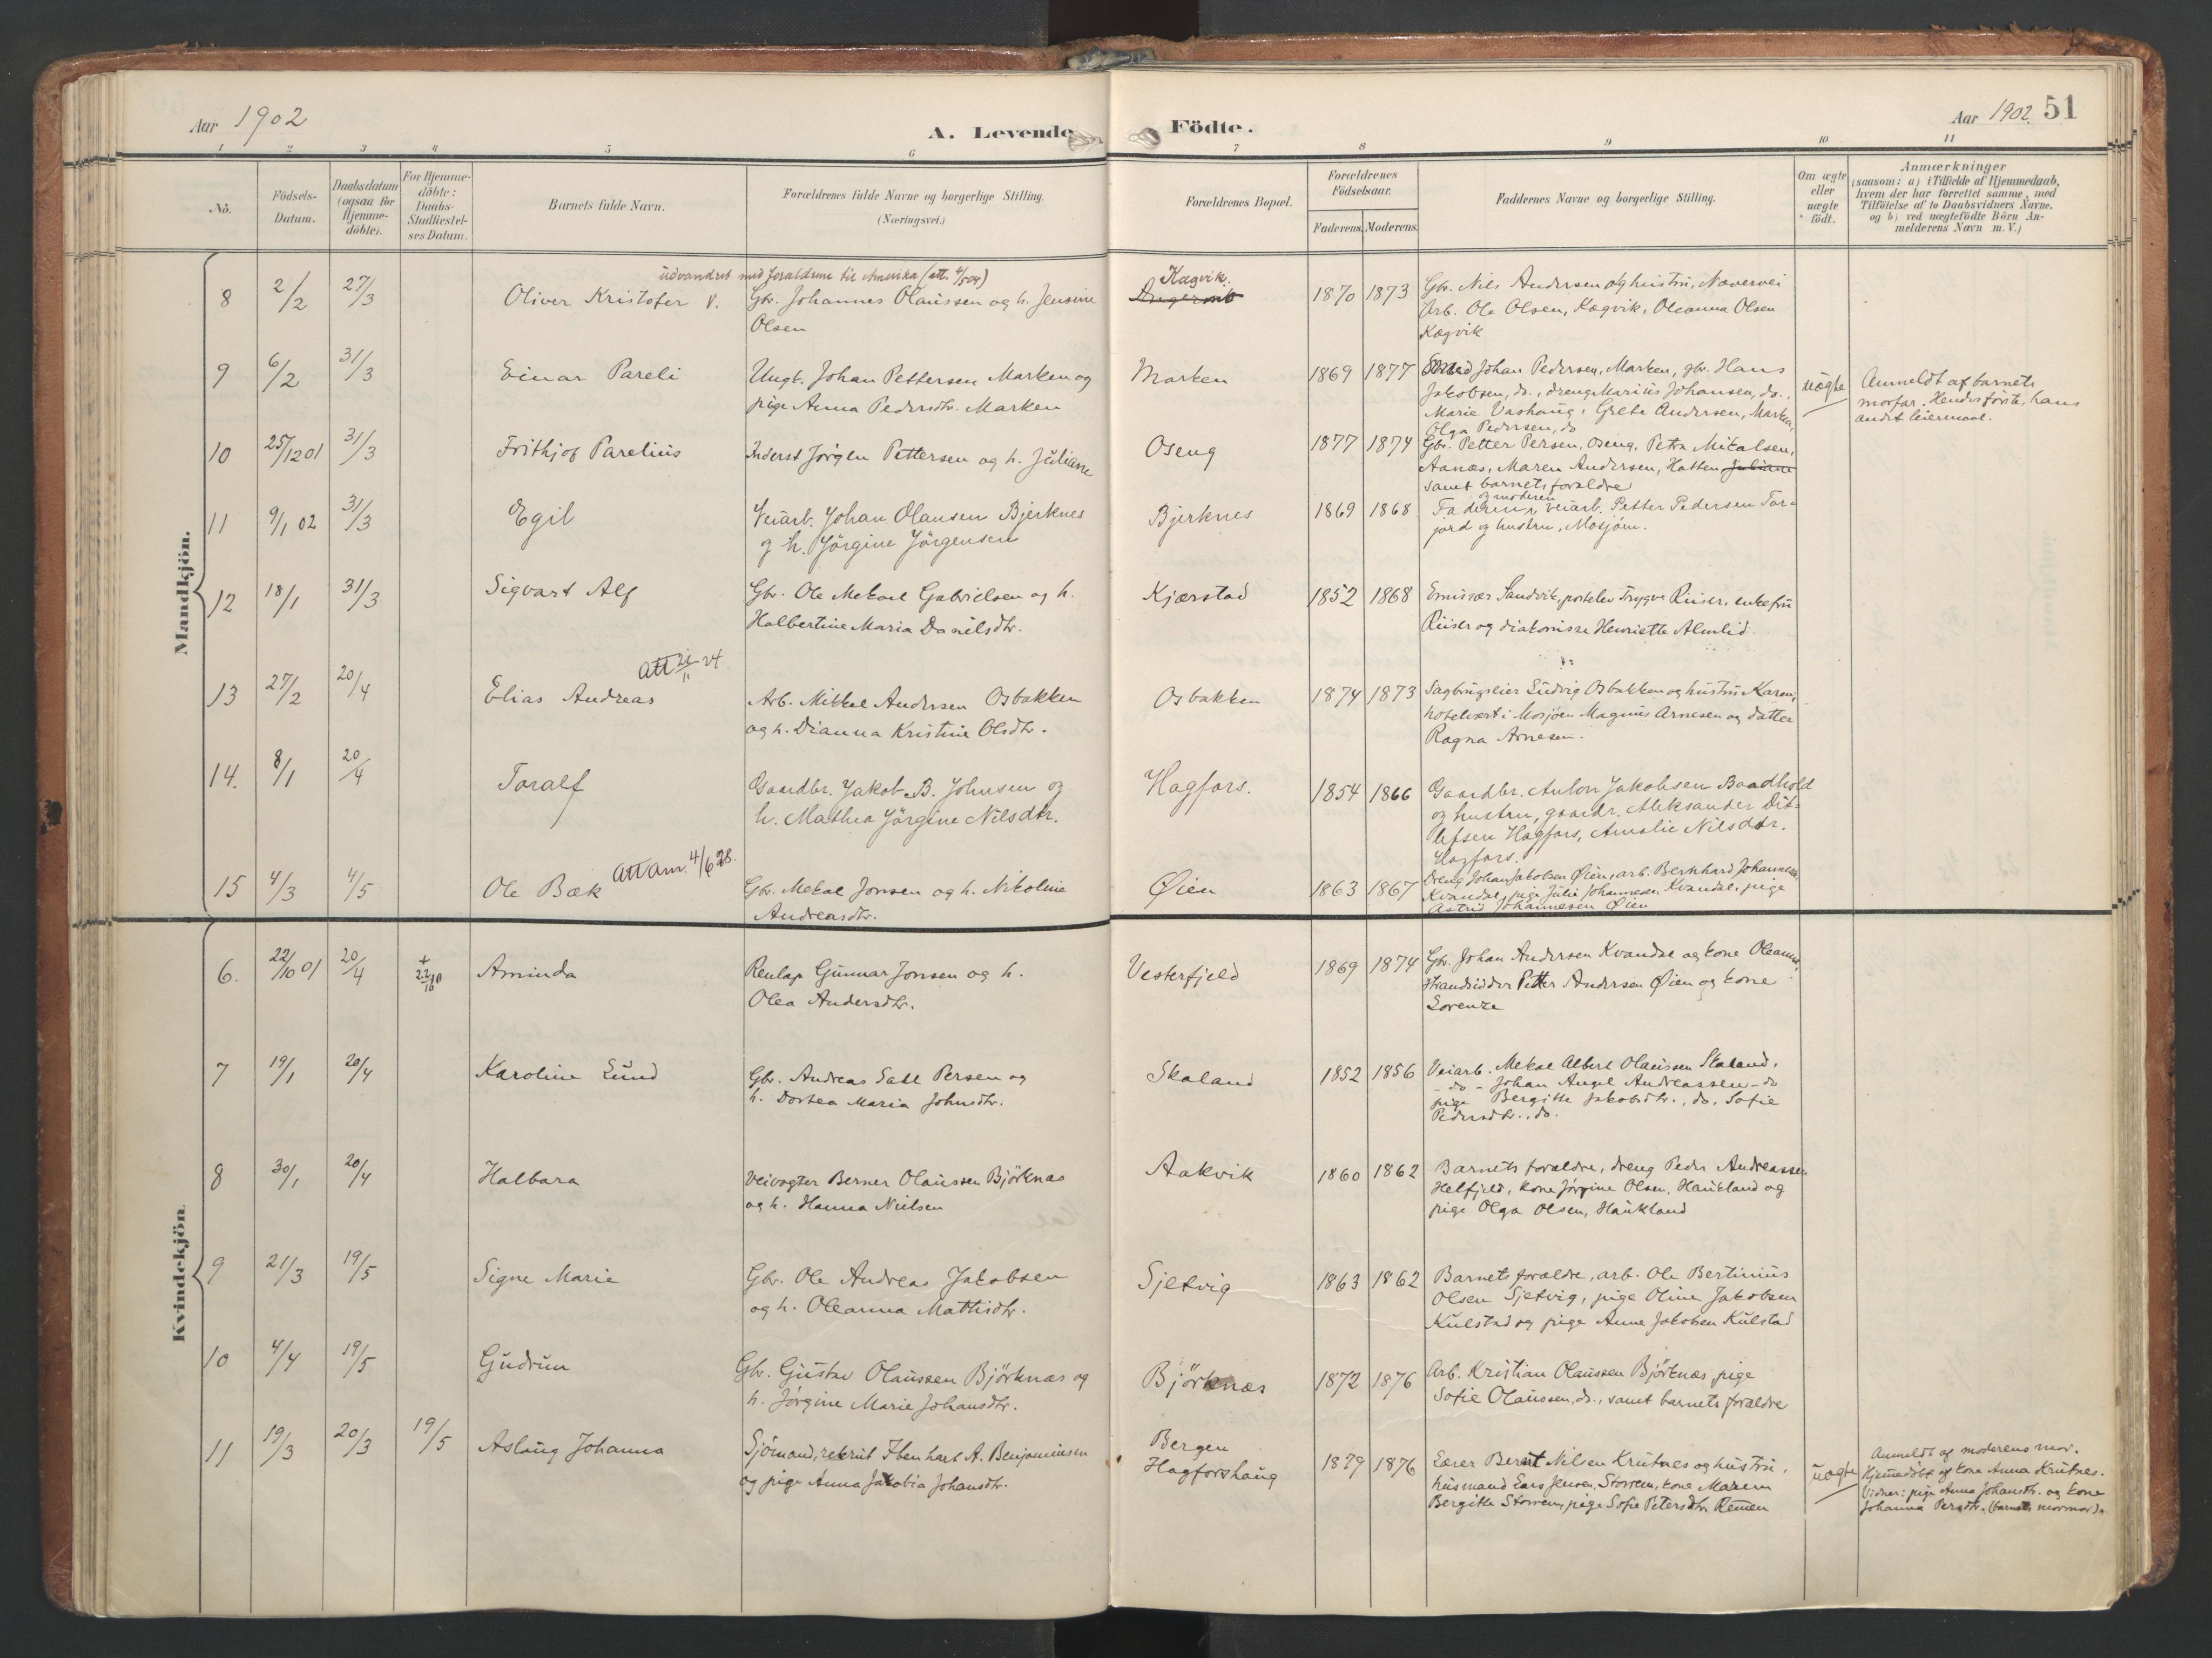 Aar 1902
A. Levende Födte.
Aar 1902. 51
1 2 3 4 5 6 7 8 9 10 11
No.
Födsels-
Datum.
Daabsdatum
(ogsaa for
Hjemme-
döbte).
For Hjemme-
döbte:
Daabs-
Stadfæstel-
ses Datum.
Barnets fulde Navn.
Forældrenes fulde Navne og borgerlige Stilling.
(Næringsvei.)
Forældrenes Bopæl.
Forældrenes
Födselsaar.
Faderens. Moderens.
Faddernes Navne og borgerlige Stilling.
Om ægte
eller
uægte
født.
Anmærkninger
(saasom: a) i Tilfælde af Hjemmedaab,
hvem der har forrettet samme, med
Tilföielse af to Daabsvidners Navne.
og b) ved uægtefödte Börn An-
melderens Navn m. V.)
Mandkjön.
udvandret med forældrene til Amerika (att. 4/5 04)
8 2/2 27/3 Oliver Kristofer V.
Gbr. Johannes Olaussen og h. Jensine
Olsen
Kagvik.
1870 1873
Gbr. Nils Andersen og hustru, Nævervei
Arb. Ole Olsen, Kagvik, Oleanna Olsen
Kagvik
9 6/2 31/3 Einar Pareli
Ungk. Johan Pettersen Marken og
pige Anna Pedersdtr. Marken
Marken
1869 1877
Johan Pedersen, Marken, gbr. Hans
Jakobsen, do., dreng Marius Johansen, do.,
Marie Vashaug, Grete Andersen, Marken,
Olga Pedersen, do
uægte
Anmeldt af barnets
morfar. Hendes første, hans
andet leiermaal.
10 25/12 01 31/3 Frithjof Parelius
Inderst Jörgen Pettersen og h. Juliane
Oseng
1877 1874
Gbr. Petter Persen, Oseng, Petra Mikalsen,
Aanæs, Maren Andersen, Hatten, Juliane
samt barnets forældre
11 9/1 02 31/3 Egil
Veiarb. Johan Olausen Bjerknes
og h. Jörgine Jörgensen
Bjerknes
1869 1868
og moderen
Faderen, veiarb. Petter Pedersen Tar-
jord og hustru, Mosjöen.
12 18/1 31/3 Sigvart Alf
Gbr. Ole Mekael Gabrielsen og h.
Halbertine Maria Danilsdtr.
Kjærstad
1852 1868
Emissær Sandvik, postelev Trygve Riiser, enkefru
Riiser og diakonisse Henriette Almlid.
Att 21/11 24.
13 27/2 20/4 Elias Andreas
Arb. Mikkel Andersen Osbakken
og h. Dianna Kristine Olsdtr.
Osbakken
1874 1873
Sagbrugseier Ludvig Osbakken og hustru Karen,
hotelvært i Mosjøen Magnus Arnesen og datter
Ragna Arnesen.
14. 8/1 20/4 Toralf
Gaardbr. Jakob B. Johnsen og
h. Mathea Jörgine Nilsdtr.
Hagfors.
1854 1866
Gaardbr. Anton Jakobsen Baadhold
og hustru, gaardbr. Aleksander Dit-
lefsen Hagfors, Amalie Nilsdtr.
Hagfors.
Att Am. 4/6 28.
15 4/3 4/5 Ole Bæk
Gbr. Mekal Jonsen og h. Nikoline
Andreasdtr.
Øien
1863 1867
Dreng Johan Jakobsen Øien, arb. Bernhard Johannesen
Kvandal, pige Julie Johannesen Kvandal, pige
Astrid Johannesen Øien
Kvindekjön.
6. 22/10 01 20/4 + 22/10 Aminda
Renlap Gunnar Jonsen og h.
Olea Andersdtr.
Vesterfjeld
1869 1874
Gbr. Johan Andersen Kvandal og kone Oleanna,
Strandsidder Petter Andersen Øien og kone
Lorenza
7 19/1 20/4 Karoline Lund
Gbr. Andreas Sakl Persen og
h. Dortea Maria Johnsdtr.
Skaland
1852 1856
Veiarb. Mekal Albert Olaussen Skaland,
- do - Johan Angel Andreassen - do
pige Bergitte Jakobsdtr., do, Sofie
Pedersdtr., do.
8 30/1 20/4 Halbara
Veivogter Berner Olaussen Björknæs
og h. Hanna Nielsen
Aakvik
1860 1862
Barnets forældre, dreng Peder Andreassen
Helfjeld, kone Jörgine Olsen, Haukland og
pige Olga Olsen, Haukland
9 21/3 19/5 Signe Marie
Gbr. Ole Andreas Jakobsen
og h. Oleanna Mathisdtr.
Sjetvig
1863 1862
Barnets forældre, arb. Ole Bertinius
Olsen Sjetvig, pige Oline Jakobsen
Kulstad og pige Anne Jakobsen Kulstad
10 4/4 19/5 Gudrun
Gbr. Gustav Olaussen Björknæs og
h. Jörgine Marie Johansdtr.
Björknæs
1872 1876
Arb. Kristian Olaussen Björknæs pige
Sofie Olaussen, do., samt barnets forældre
11 19/3 20/3 19/5 Aslaug Johanna
Sjömand, rekrut Ibenhart A. Benjaminsen
og pige Anna Jakobia Johansdtr.
Bergen
Hagforshaug
1879 1876
Lærer Bernt Nilsen Krutnes og hustru,
husmand Lars Jensen, Storren, kone Maren
Bergitte Storren, pige Sofie Petersdtr. Remen
uægte
Anmeldt af moderens mor.
Hjemmedöbt af kone Anna Krutnes.
Vidner: pige Anna Johansdtr. og kone
Johanna Persdtr. (barnets mormor).